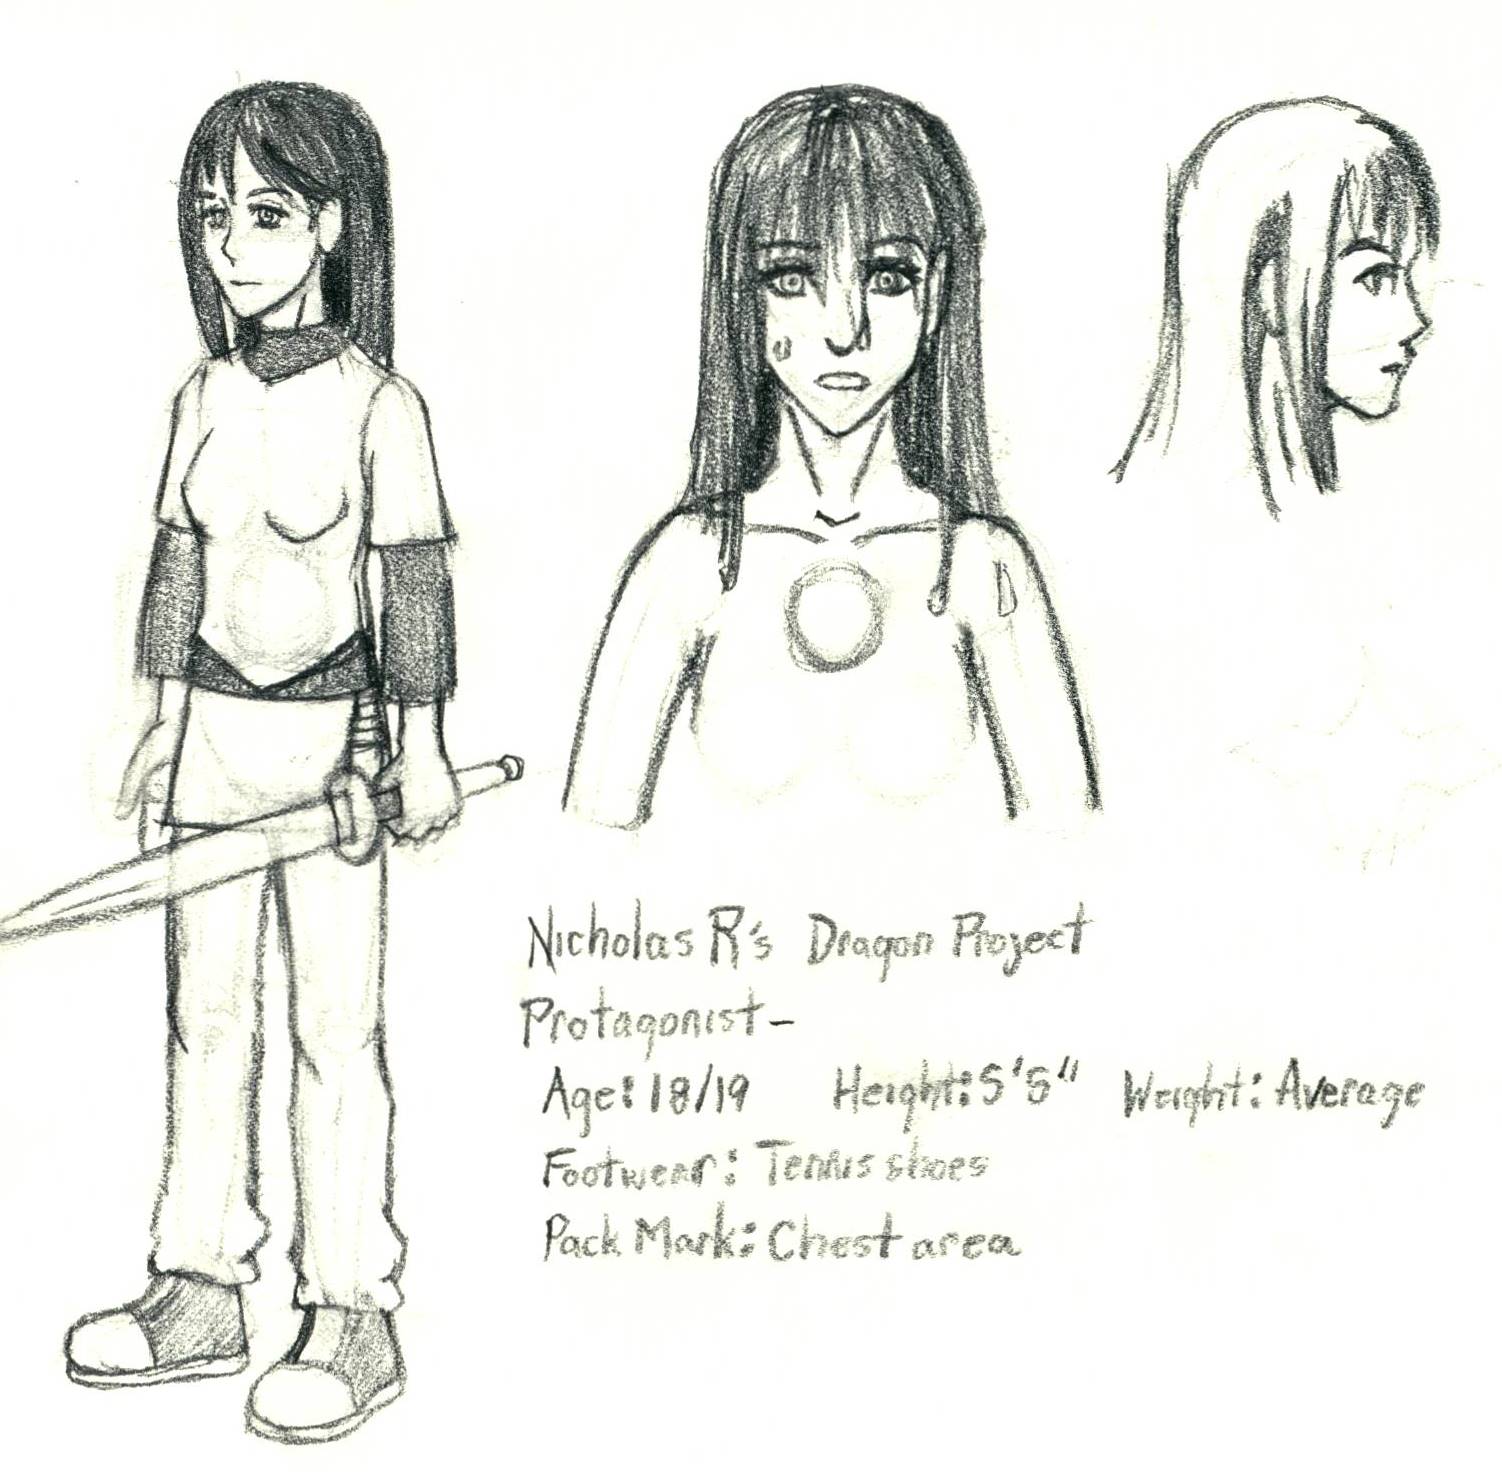 Nicholas R's Dragon Project
Protagonist-
Age: 18/19 Height: 5'5" Weight: Average
Footwear: Tennis shoes
Pack Mark: Chest area